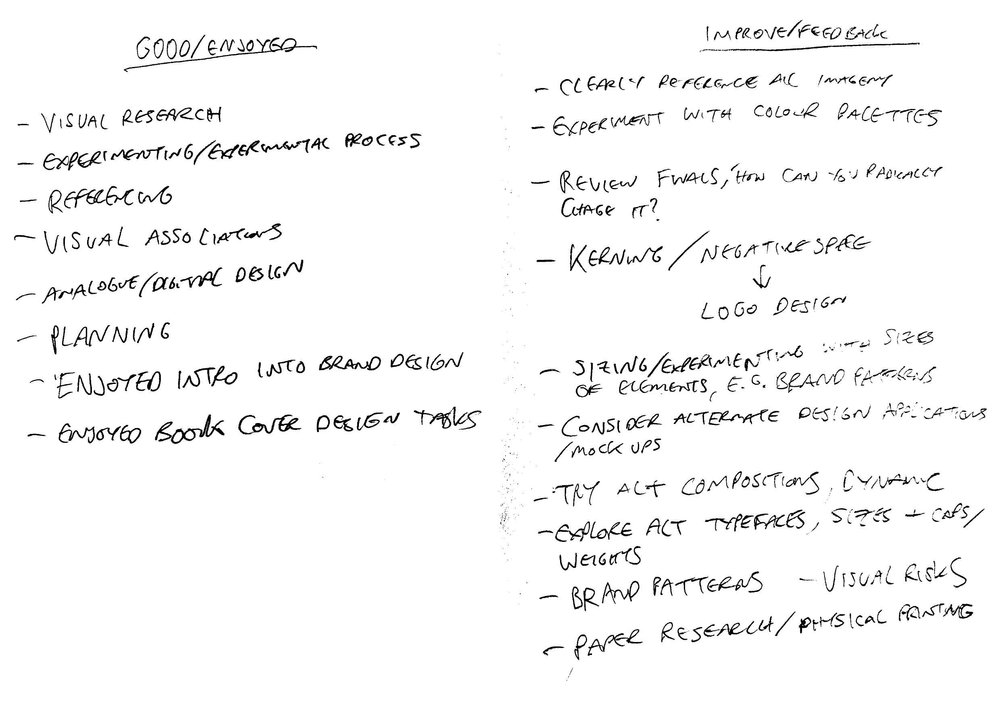 GOOD/ENJOYED
- VISUAL RESEARCH
- EXPERIMENTING/EXPERIMENTAL PROCESS
- REFERENCING
- VISUAL ASSOCIATIONS
- ANALOGUE/DIGITAL DESIGN
- PLANNING
- ENJOYED INTRO INTO BRAND DESIGN
- ENJOYED BOOK COVER DESIGN TASKS
IMPROVE/FEEDBACK
- CLEARLY REFERENCE ALL IMAGERY
- EXPERIMENT WITH COLOUR PALETTES
- REVIEW FINALS, 'HOW CAN YOU RADICALLY
CHAGE IT?
- KERNING / NEGATIVE SPACE
↓
LOGO DESIGN
- SIZING/EXPERIMENTING WITH SIZES
OF ELEMENTS, E.G. BRAND PATTERNS
- CONSIDER ALTERNATE DESIGN APPLICATIONS
/MOCK UPS
- TRY ALT COMPOSITIONS, DYNAMIC
- EXPLORE ALT TYPEFACES, SIZES + CAPS/
WEIGHTS
- BRAND PATTERNS - VISUAL RISKS
- PAPER RESEARCH/PHYSICAL PRINTING